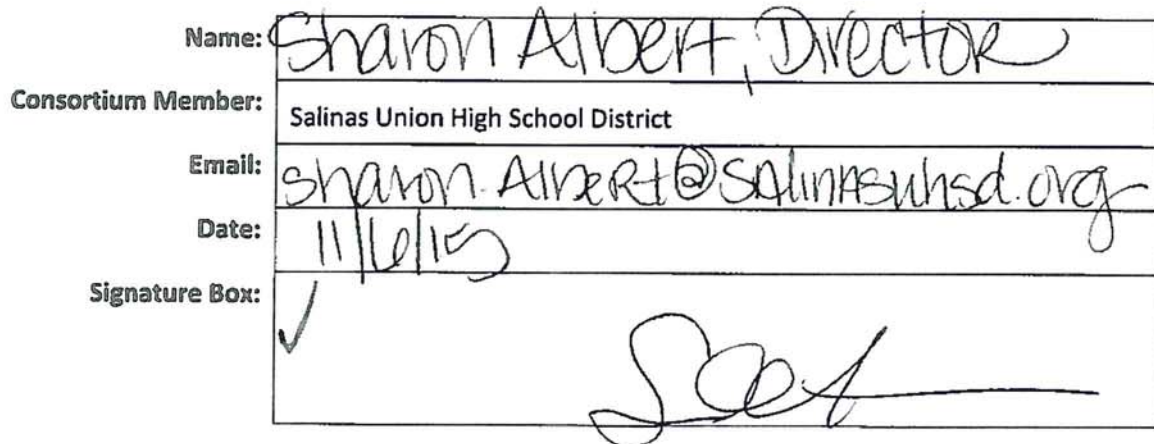 Name: Sharon Albert, Director
Consortium Member: Salinas Union High School District
Email: sharon.Albert@salinasuhsd.org
Date: 11/6/15
Signature Box: ✓